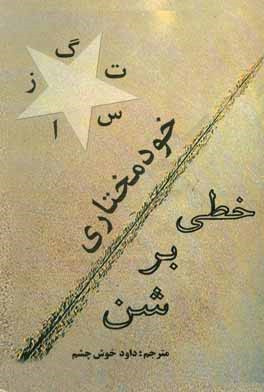 ت گ
ز
س ا
خودمختاری
خطی
بر
شن
مترجم: داود خوش چشم